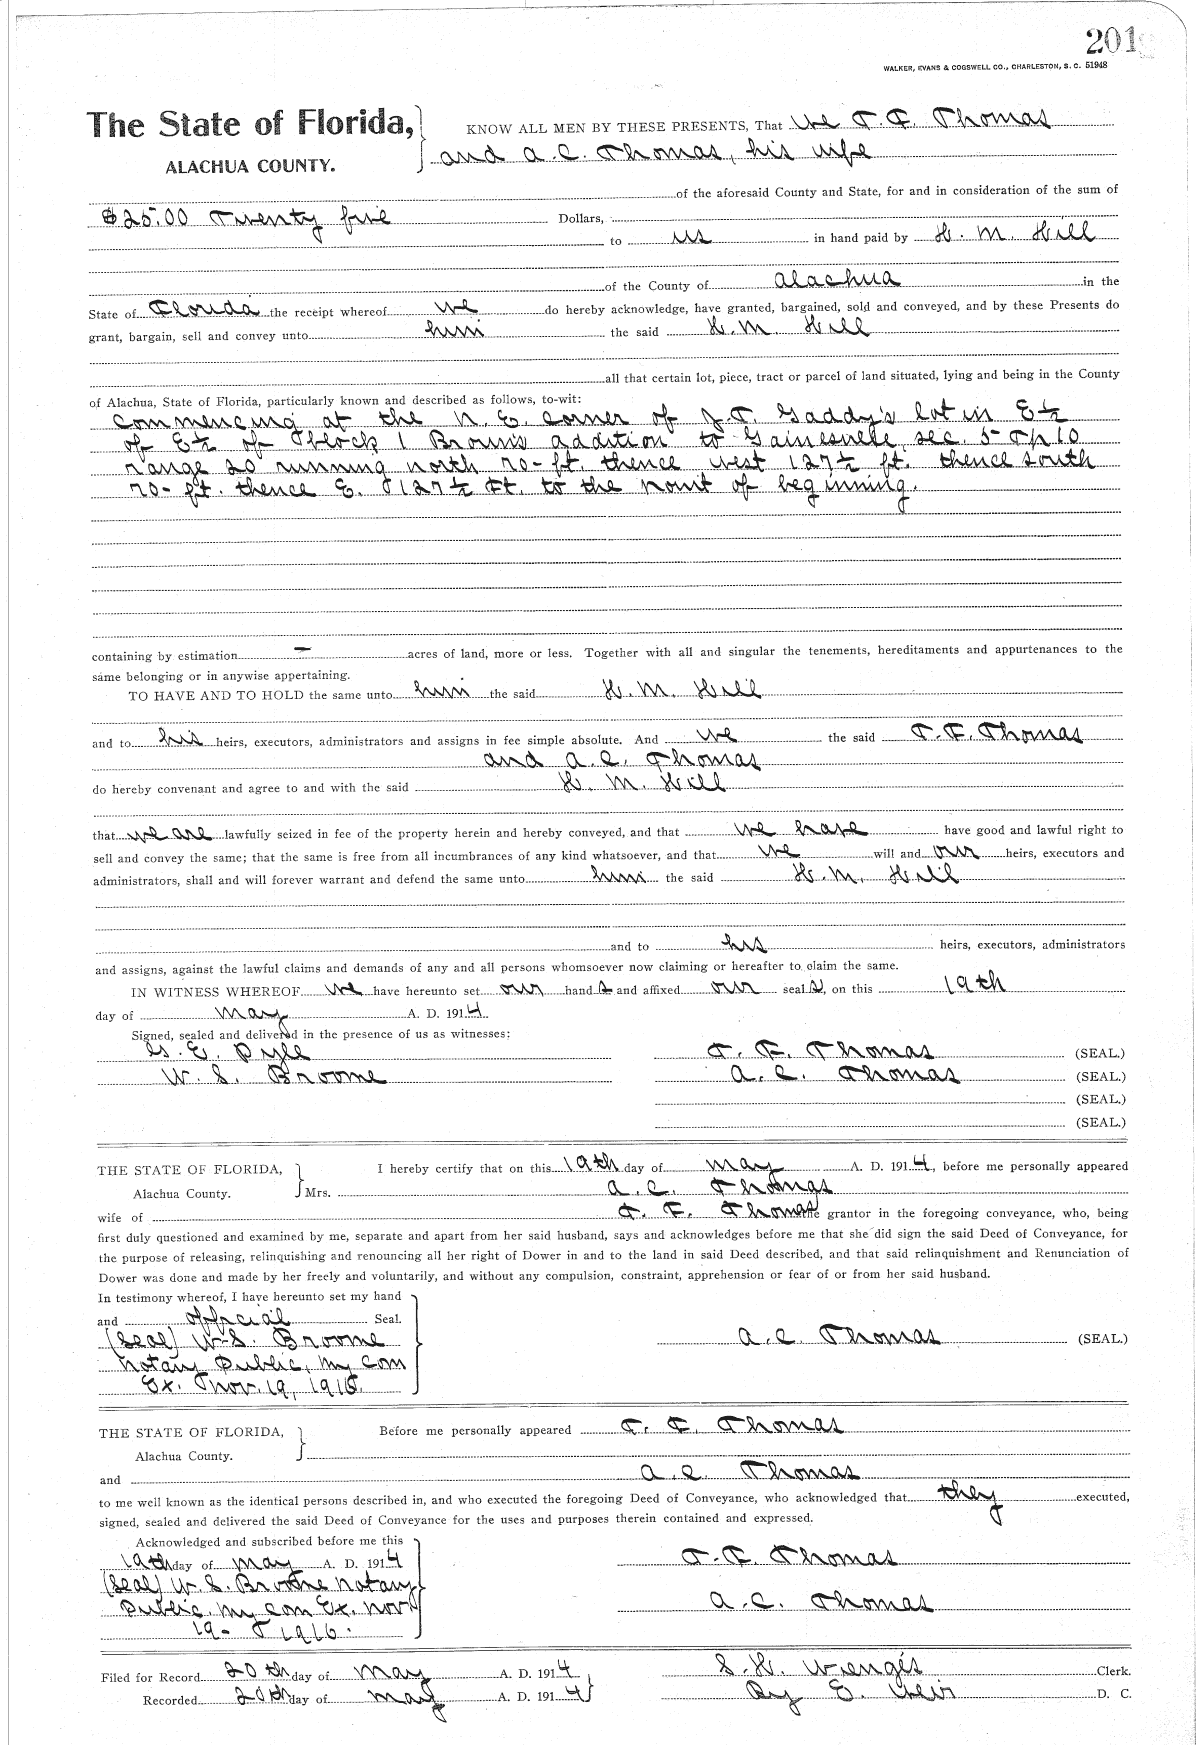 201
WALKER, EVANS & COGSWELL CO., CHARLESTON, S. C. 51948
The State of Florida,
ALACHUA COUNTY.
KNOW ALL MEN BY THESE PRESENTS, That We T. F. Thomas
and A. C. Thomas, his wife
of the aforesaid County and State, for and in consideration of the sum of
$25.00 Twenty five Dollars,
to us in hand paid by H. M. Hill
of the County of Alachua in the
State of Florida the receipt whereof we do hereby acknowledge, have granted, bargained, sold and conveyed, and by these Presents do
grant, bargain, sell and convey unto him the said H. M. Hill
all that certain lot, piece, tract or parcel of land situated, lying and being in the County
of Alachua, State of Florida, particularly known and described as follows, to-wit:
Commencing at the N. E. corner of J. T. Gaddy's lot in E½
of E½ of Block 1 Brown's addition to Gainesville, sec. 5 Tp 10
range 20 running north 70-ft. thence west 127½ ft. thence south
70-ft. thence E. 127½ ft. to the point of beginning.
containing by estimation - acres of land, more or less. Together with all and singular the tenements, hereditaments and appurtenances to the
same belonging or in anywise appertaining.
TO HAVE AND TO HOLD the same unto him the said H. M. Hill
and to his heirs, executors, administrators and assigns in fee simple absolute. And we the said T. F. Thomas
and A. C. Thomas
do hereby convenant and agree to and with the said H. M. Hill
that we are lawfully seized in fee of the property herein and hereby conveyed, and that we have have good and lawful right to
sell and convey the same; that the same is free from all incumbrances of any kind whatsoever, and that we will and our heirs, executors and
administrators, shall and will forever warrant and defend the same unto him the said H. M. Hill
and to his heirs, executors, administrators
and assigns, against the lawful claims and demands of any and all persons whomsoever now claiming or hereafter to claim the same.
IN WITNESS WHEREOF we have hereunto set our hand s and affixed our seal s, on this 19th
day of May A. D. 1914.
Signed, sealed and delivered in the presence of us as witnesses:
G. E. Pyle
W. S. Broome
T. F. Thomas (SEAL.)
A. C. Thomas (SEAL.)
(SEAL.)
(SEAL.)
THE STATE OF FLORIDA,
Alachua County.
I hereby certify that on this 19th day of May A. D. 1914, before me personally appeared
Mrs. A. C. Thomas
wife of T. F. Thomas the grantor in the foregoing conveyance, who, being
first duly questioned and examined by me, separate and apart from her said husband, says and acknowledges before me that she did sign the said Deed of Conveyance, for
the purpose of releasing, relinquishing and renouncing all her right of Dower in and to the land in said Deed described, and that said relinquishment and Renunciation of
Dower was done and made by her freely and voluntarily, and without any compulsion, constraint, apprehension or fear of or from her said husband.
In testimony whereof, I have hereunto set my hand
and official Seal.
(Seal) W. S. Broome
Notary Public, My Com
Ex. Nov. 19, 1916.
A. C. Thomas (SEAL.)
THE STATE OF FLORIDA,
Alachua County.
Before me personally appeared T. F. Thomas
and A. C. Thomas
to me well known as the identical persons described in, and who executed the foregoing Deed of Conveyance, who acknowledged that they executed,
signed, sealed and delivered the said Deed of Conveyance for the uses and purposes therein contained and expressed.
Acknowledged and subscribed before me this
19th day of May A. D. 1914
(Seal) W. S. Broome Notary
Public. My Com Ex. Nov
19- 1916.
T. F. Thomas
A. C. Thomas
Filed for Record 20th day of May A. D. 1914
Recorded 20th day of May A. D. 1914
S. H. Wienges Clerk.
By E. Weir D. C.